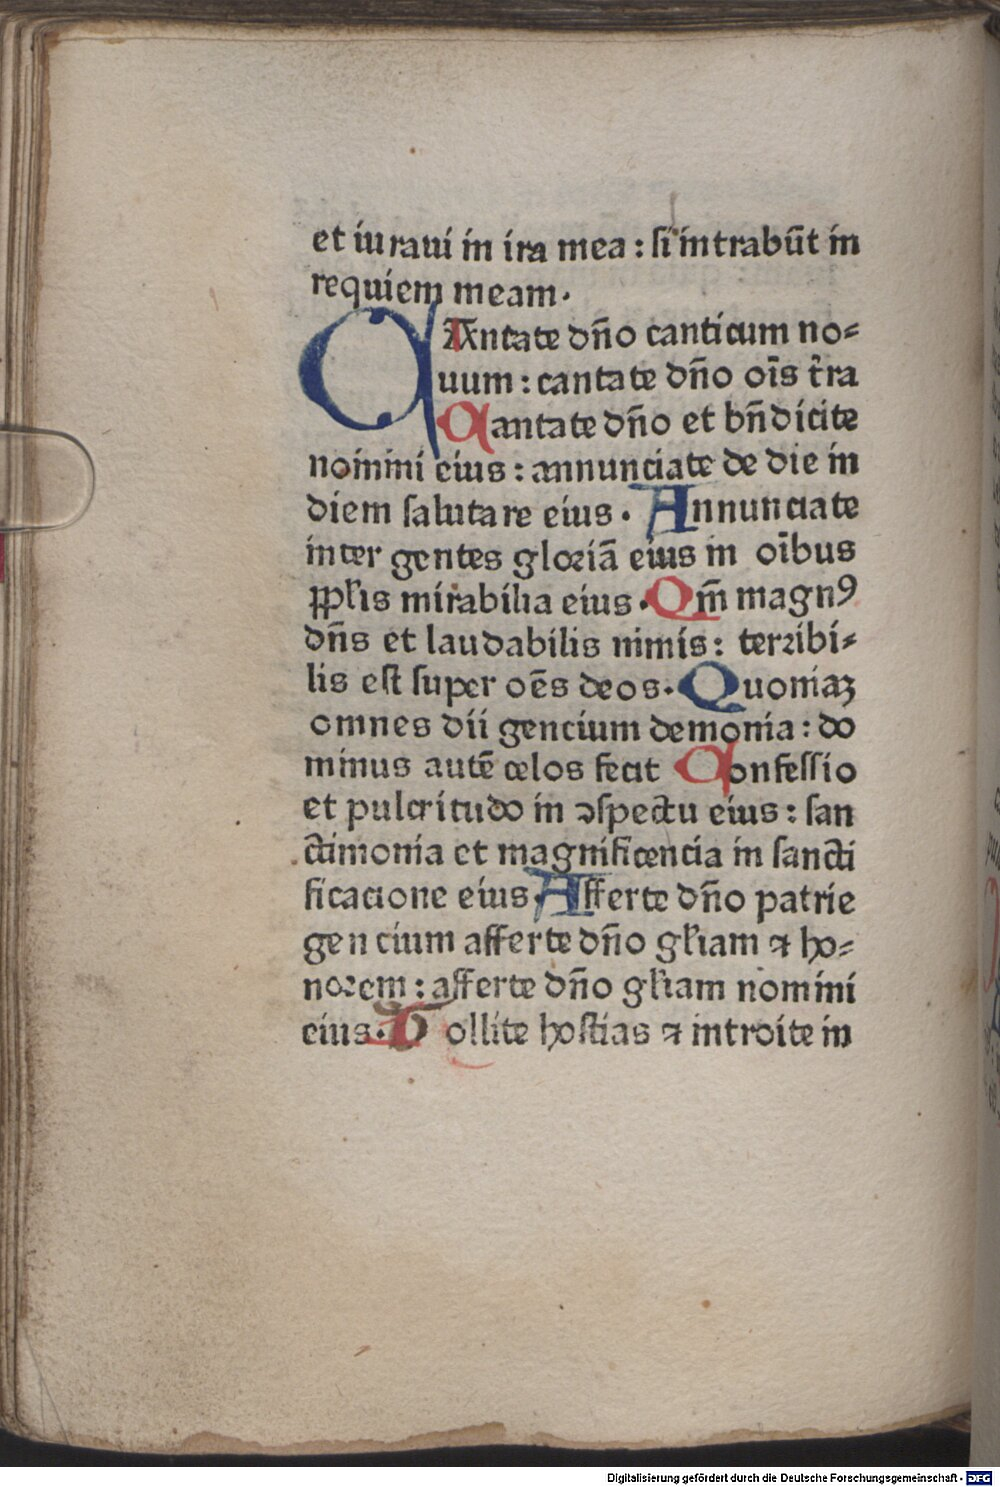 et iuraui in ira mea : si intrabūt in
requiem meam.
CAntate dn̄o canticum no=
uum : cantate dn̄o oīs t̄ra
Cantate dn̄o et bn̄dicite
nomini eius : annunciate de die in
diem salutare eius. Annunciate
inter gentes gloriā eius in oībus
ppl̄is mirabilia eius. Qm̄ magnꝰ
dn̄s et laudabilis nimis : terribi=
lis est super oēs deos. Quoniaꝫ
omnes dii gencium demonia : do
minus autē celos fecit Confessio
et pulcritudo in ↄspectu eius : san
ctimonia et magnificencia in sancti
ficacione eius. Afferte dn̄o patrie
gencium afferte dn̄o gl̄iam ⁊ ho=
norem : afferte dn̄o gl̄iam nomini
eius. Tollite hostias ⁊ introite in
Digitalisierung gefördert durch die Deutsche Forschungsgemeinschaft - DFG